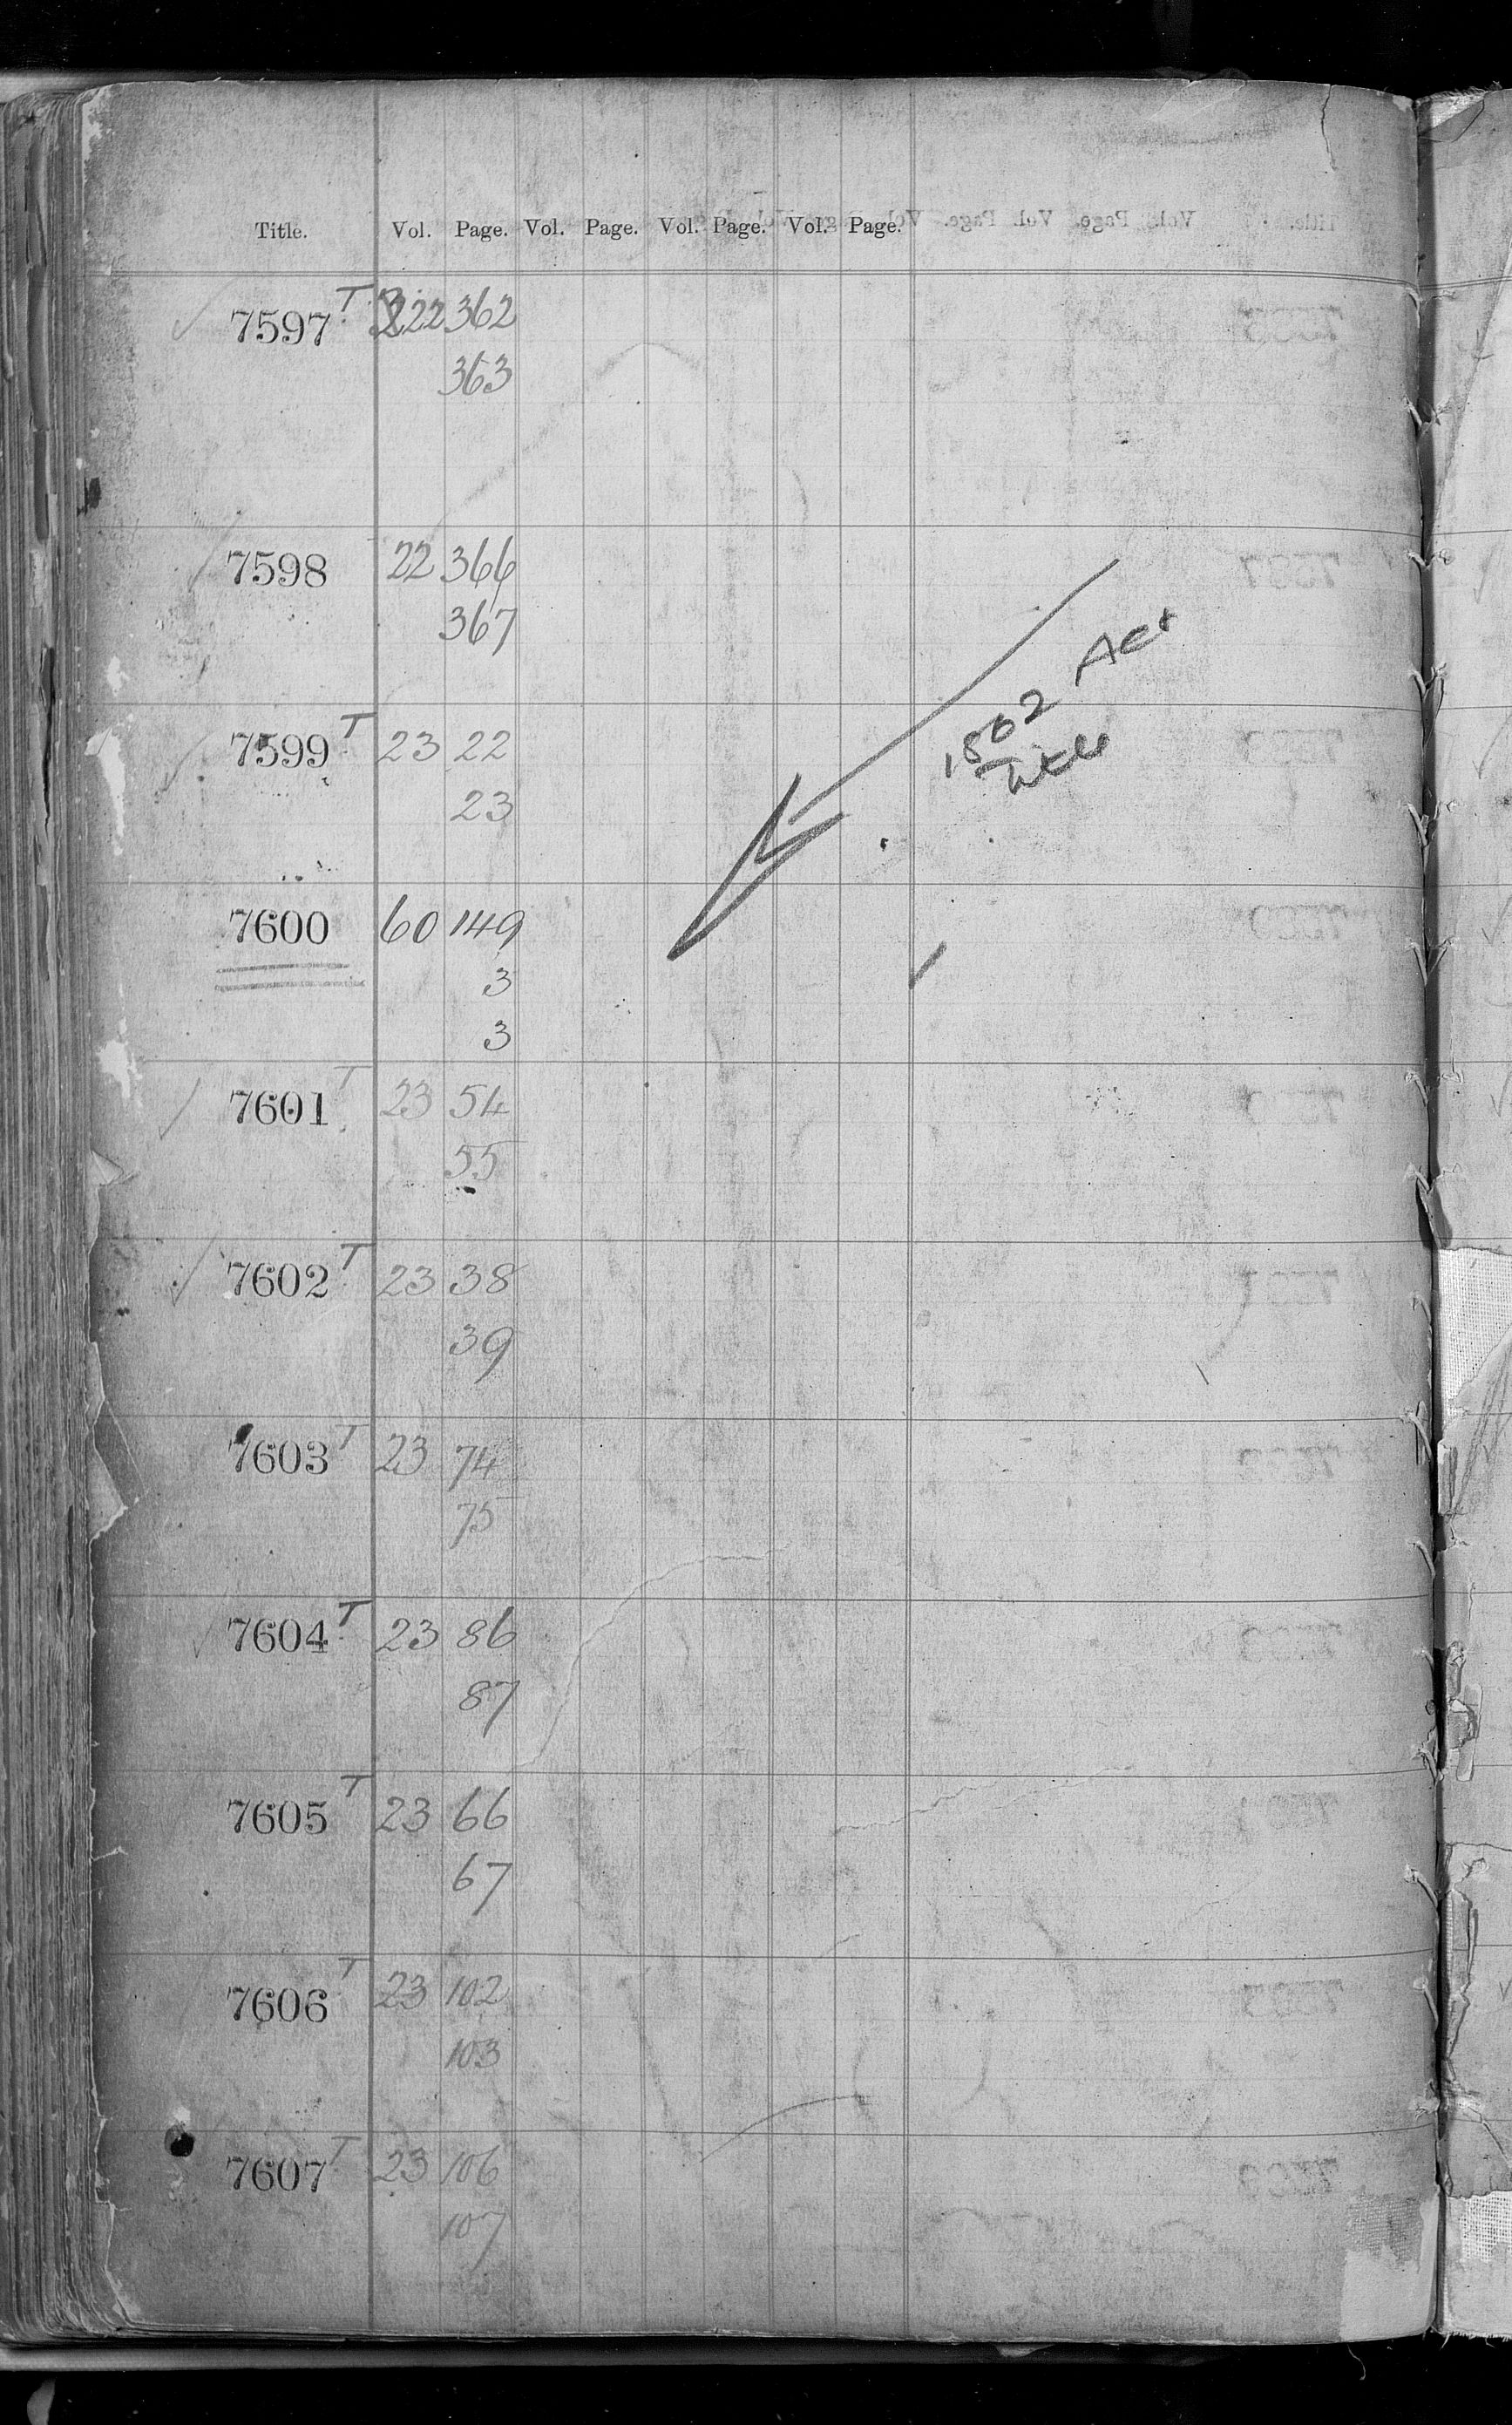 Title. Vol. Page. Vol. Page. Vol. Page. Vol. Page.
7597 T 22 362
363
7598 22 366
367
1502 Act
7599 T 23 22
23
7600 60 149
3
3
7601 T 23 54
55
7602 T 23 38
39
7603 T 23 74
75
7604 T 23 86
87
7605 T 23 66
67
7606 T 23 102
103
7607 T 23 106
107